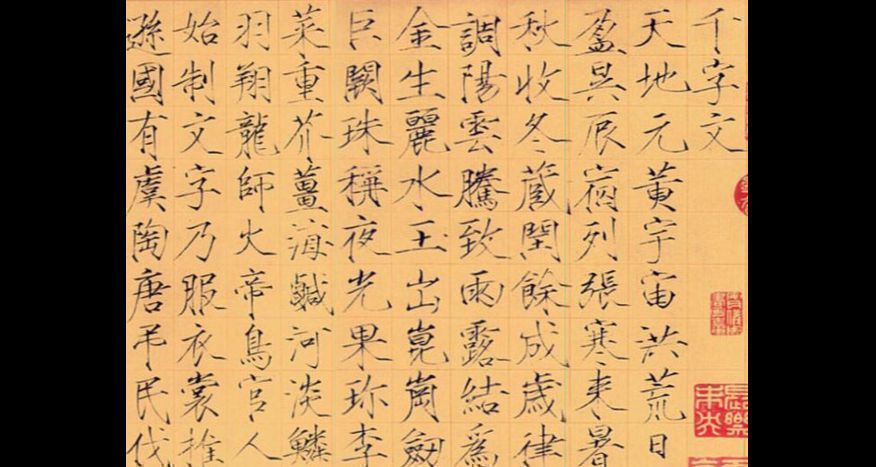 千字文
天地元黃宇宙洪荒日
盈昃辰宿列張寒来暑
秋收冬藏閏餘成歲律
調陽雲騰致雨露結爲
金生麗水玉出崑崗劒
巨闕珠稱夜光果珎李
菜重芥薑海鹹河淡鱗
羽翔龍師火帝鳥官人
始制文字乃服衣裳推
遜國有虞陶唐弔民伐